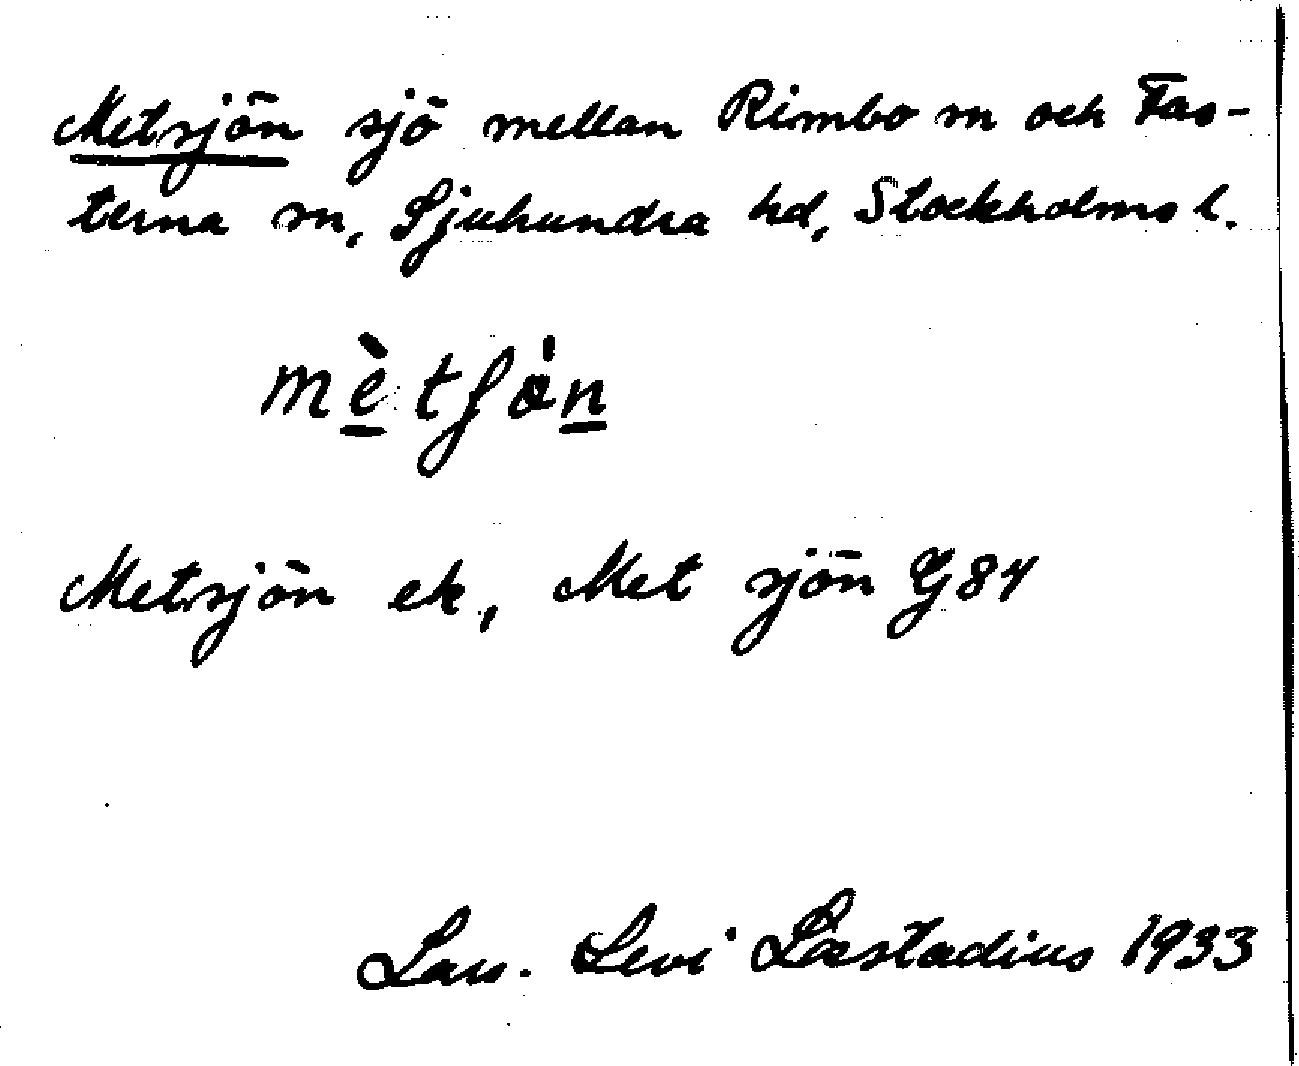 Metsjön sjö mellan Rimbo sn och Fas-
terna sn, Sjuhundra hd, Stockholms l.
mètʃȯn
Metsjön ek, Met sjön G84
Lars-Levi Læstadius 1933